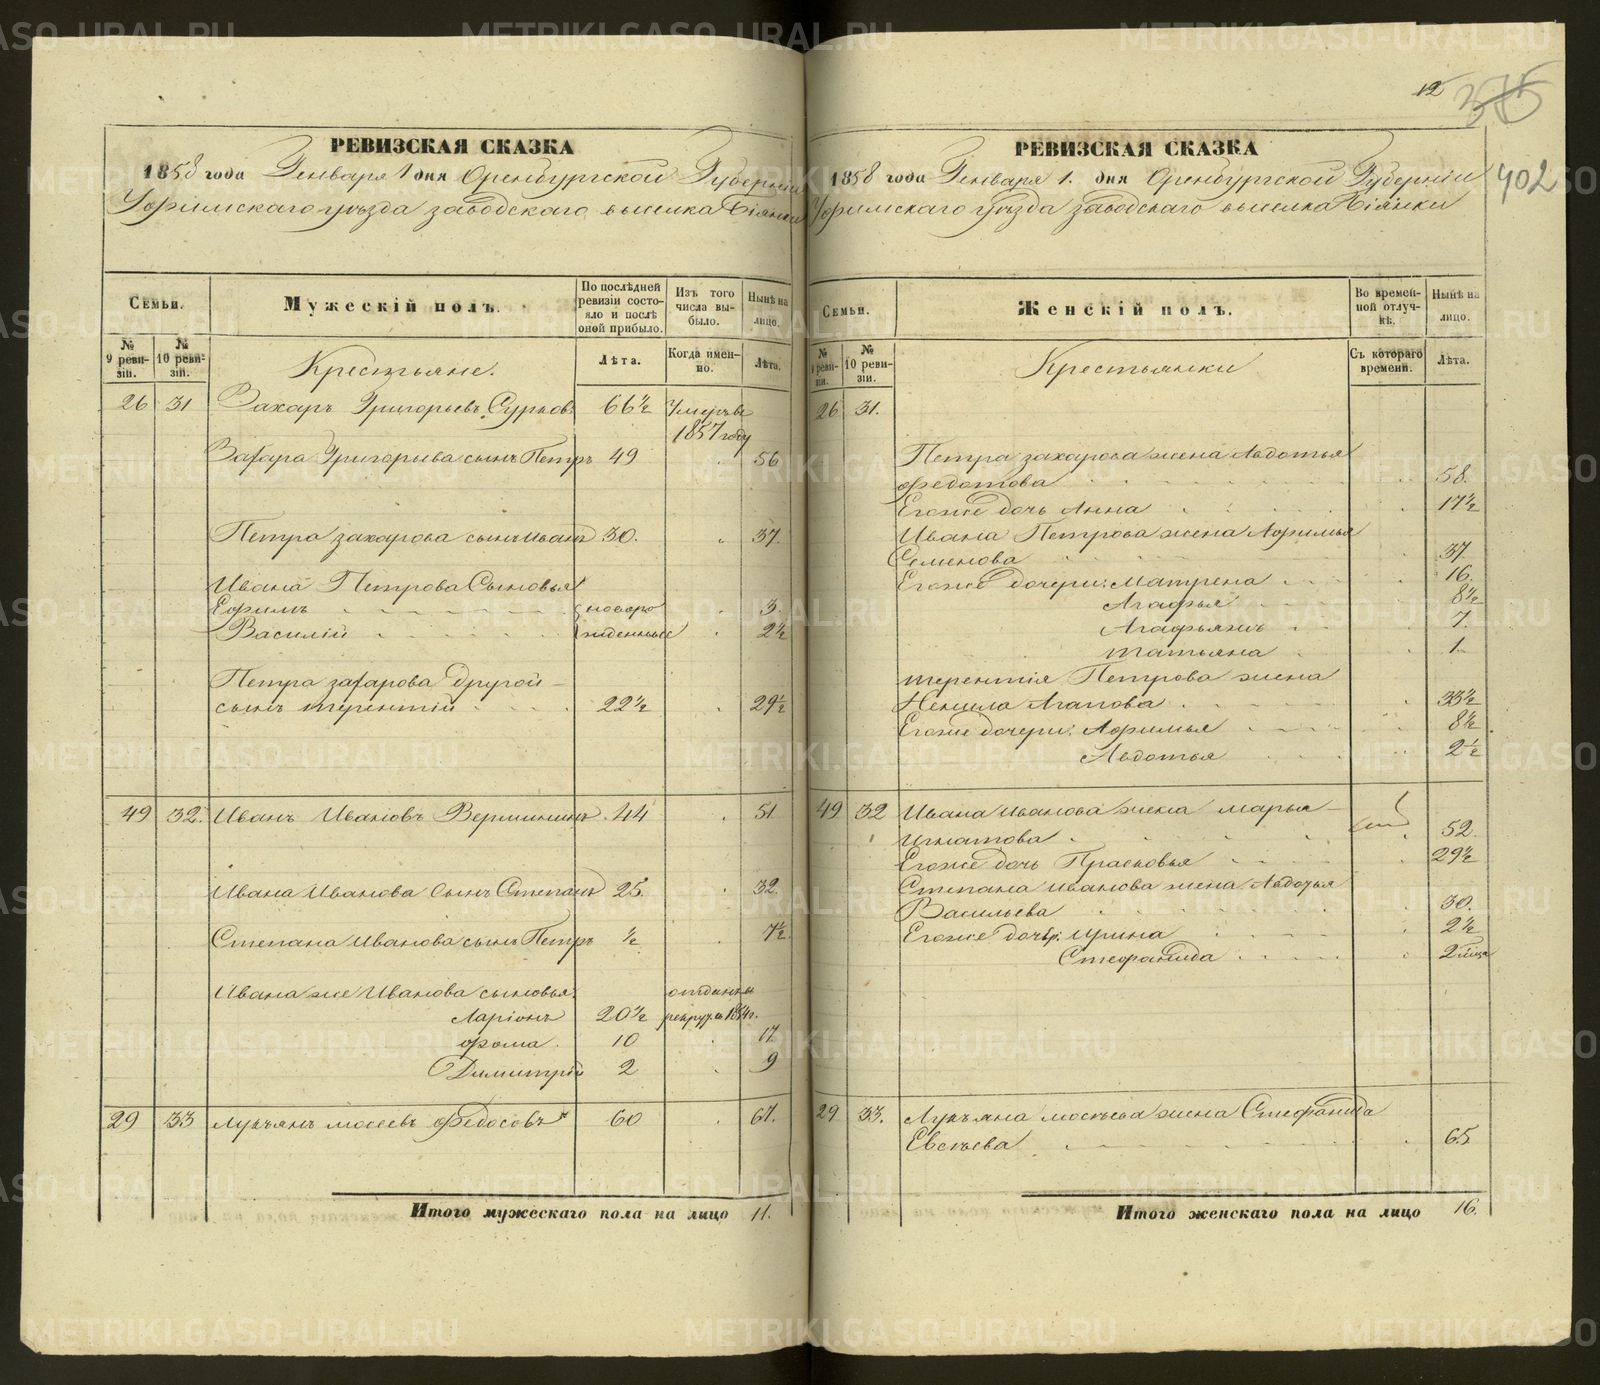 METRIKI.GASO-URAL.RU
12
375
402
РЕВИЗСКАЯ СКАЗКА
1858 года Генваря 1 дня Оренбургской Губерніи
Уфимскаго уѣзда заводскаго выселка Біянки
Семьи.
Мужескій полъ.
По послѣдней ревизіи состояло и послѣ оной прибыло.
Изъ того числа выбыло.
Нынѣ на лицо.
№ 9 ревизіи.
№ 10 ревизіи.
Крестьяне.
Лѣта.
Когда именно.
Лѣта.
26 31 Захаръ Григорьевъ Сурковъ 66½ Умеръ въ
1857 году
Захара Григорьева сынъ Петръ 49 56
Петра Захарова сынъ Иванъ 30. 37.
Ивана Петрова Сыновья
Ефимъ новоро 3.
Василій жденные 2½
Петра Захарова другой
сынъ Терентій 22½ 29½
49 32. Иванъ Ивановъ 44 51
Ивана Иванова Сынъ Степанъ 25. 32.
Степана Иванова сынъ Петръ ½ 7½.
Ивана же Иванова сыновья: отданъ въ
Ларіонъ 20½ рекруты 1854 г.
Фома. 10 17.
Димитрій 2 9
29 33 Лукъянъ Мосеевъ Федосовъ 60 67.
Итого мужескаго пола на лицо 11.
РЕВИЗСКАЯ СКАЗКА
1858 года Генваря 1. дня Оренбургской Губерніи
Уфимскаго уѣзда заводскаго выселка Біянки
Семьи.
Женскій полъ.
Во временной отлучкѣ.
Нынѣ на лицо.
№ 9 ревизіи.
№ 10 ревизіи.
Крестьянки
Съ котораго времени.
Лѣта.
26 31.
Петра Захарова жена Авдотья
Федотова 58.
Егоже дочь Анна 17½
Ивана Петрова жена Афимья
Семенова 37.
Егоже дочери: Матрена 16.
Агафья 8½
7.
Татьяна 1.
Терентія Петрова жена
Ненила Агапова 33½
Егоже дочери: Афимья 8½
Авдотья 2½
49 32 Ивана Иванова жена Марья
Игнатова 52.
Егоже дочь Прасковья 29½
Степана Иванова жена Авдотья
Васильева 30.
Егоже дочери: Ирина 2½
Стефанида 2 мѣсяца
29 33. Лукъяна Мосѣева жена Стефанида
Евсѣева 65
Итого женскаго пола на лицо 16.